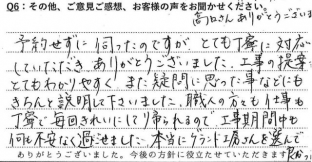 Q6：その他、ご意見ご感想、お客様の声をお聞かせください。
高口さんありがとうございま
予約せずに伺ったのですが、とても丁寧に対応
していただき、ありがとうございました。工事の提案
とてもわかりやすく、また疑問に思った事などにも
きちんと説明して下さいました。職人の方々も仕事も
丁寧で毎回きれいにして帰られるので、工事期間中も
何も不安なく過ごせました。本当にグランド工房さんを選んで
ありがとうございました。今後の方針に役立たせていただきます
良かっ